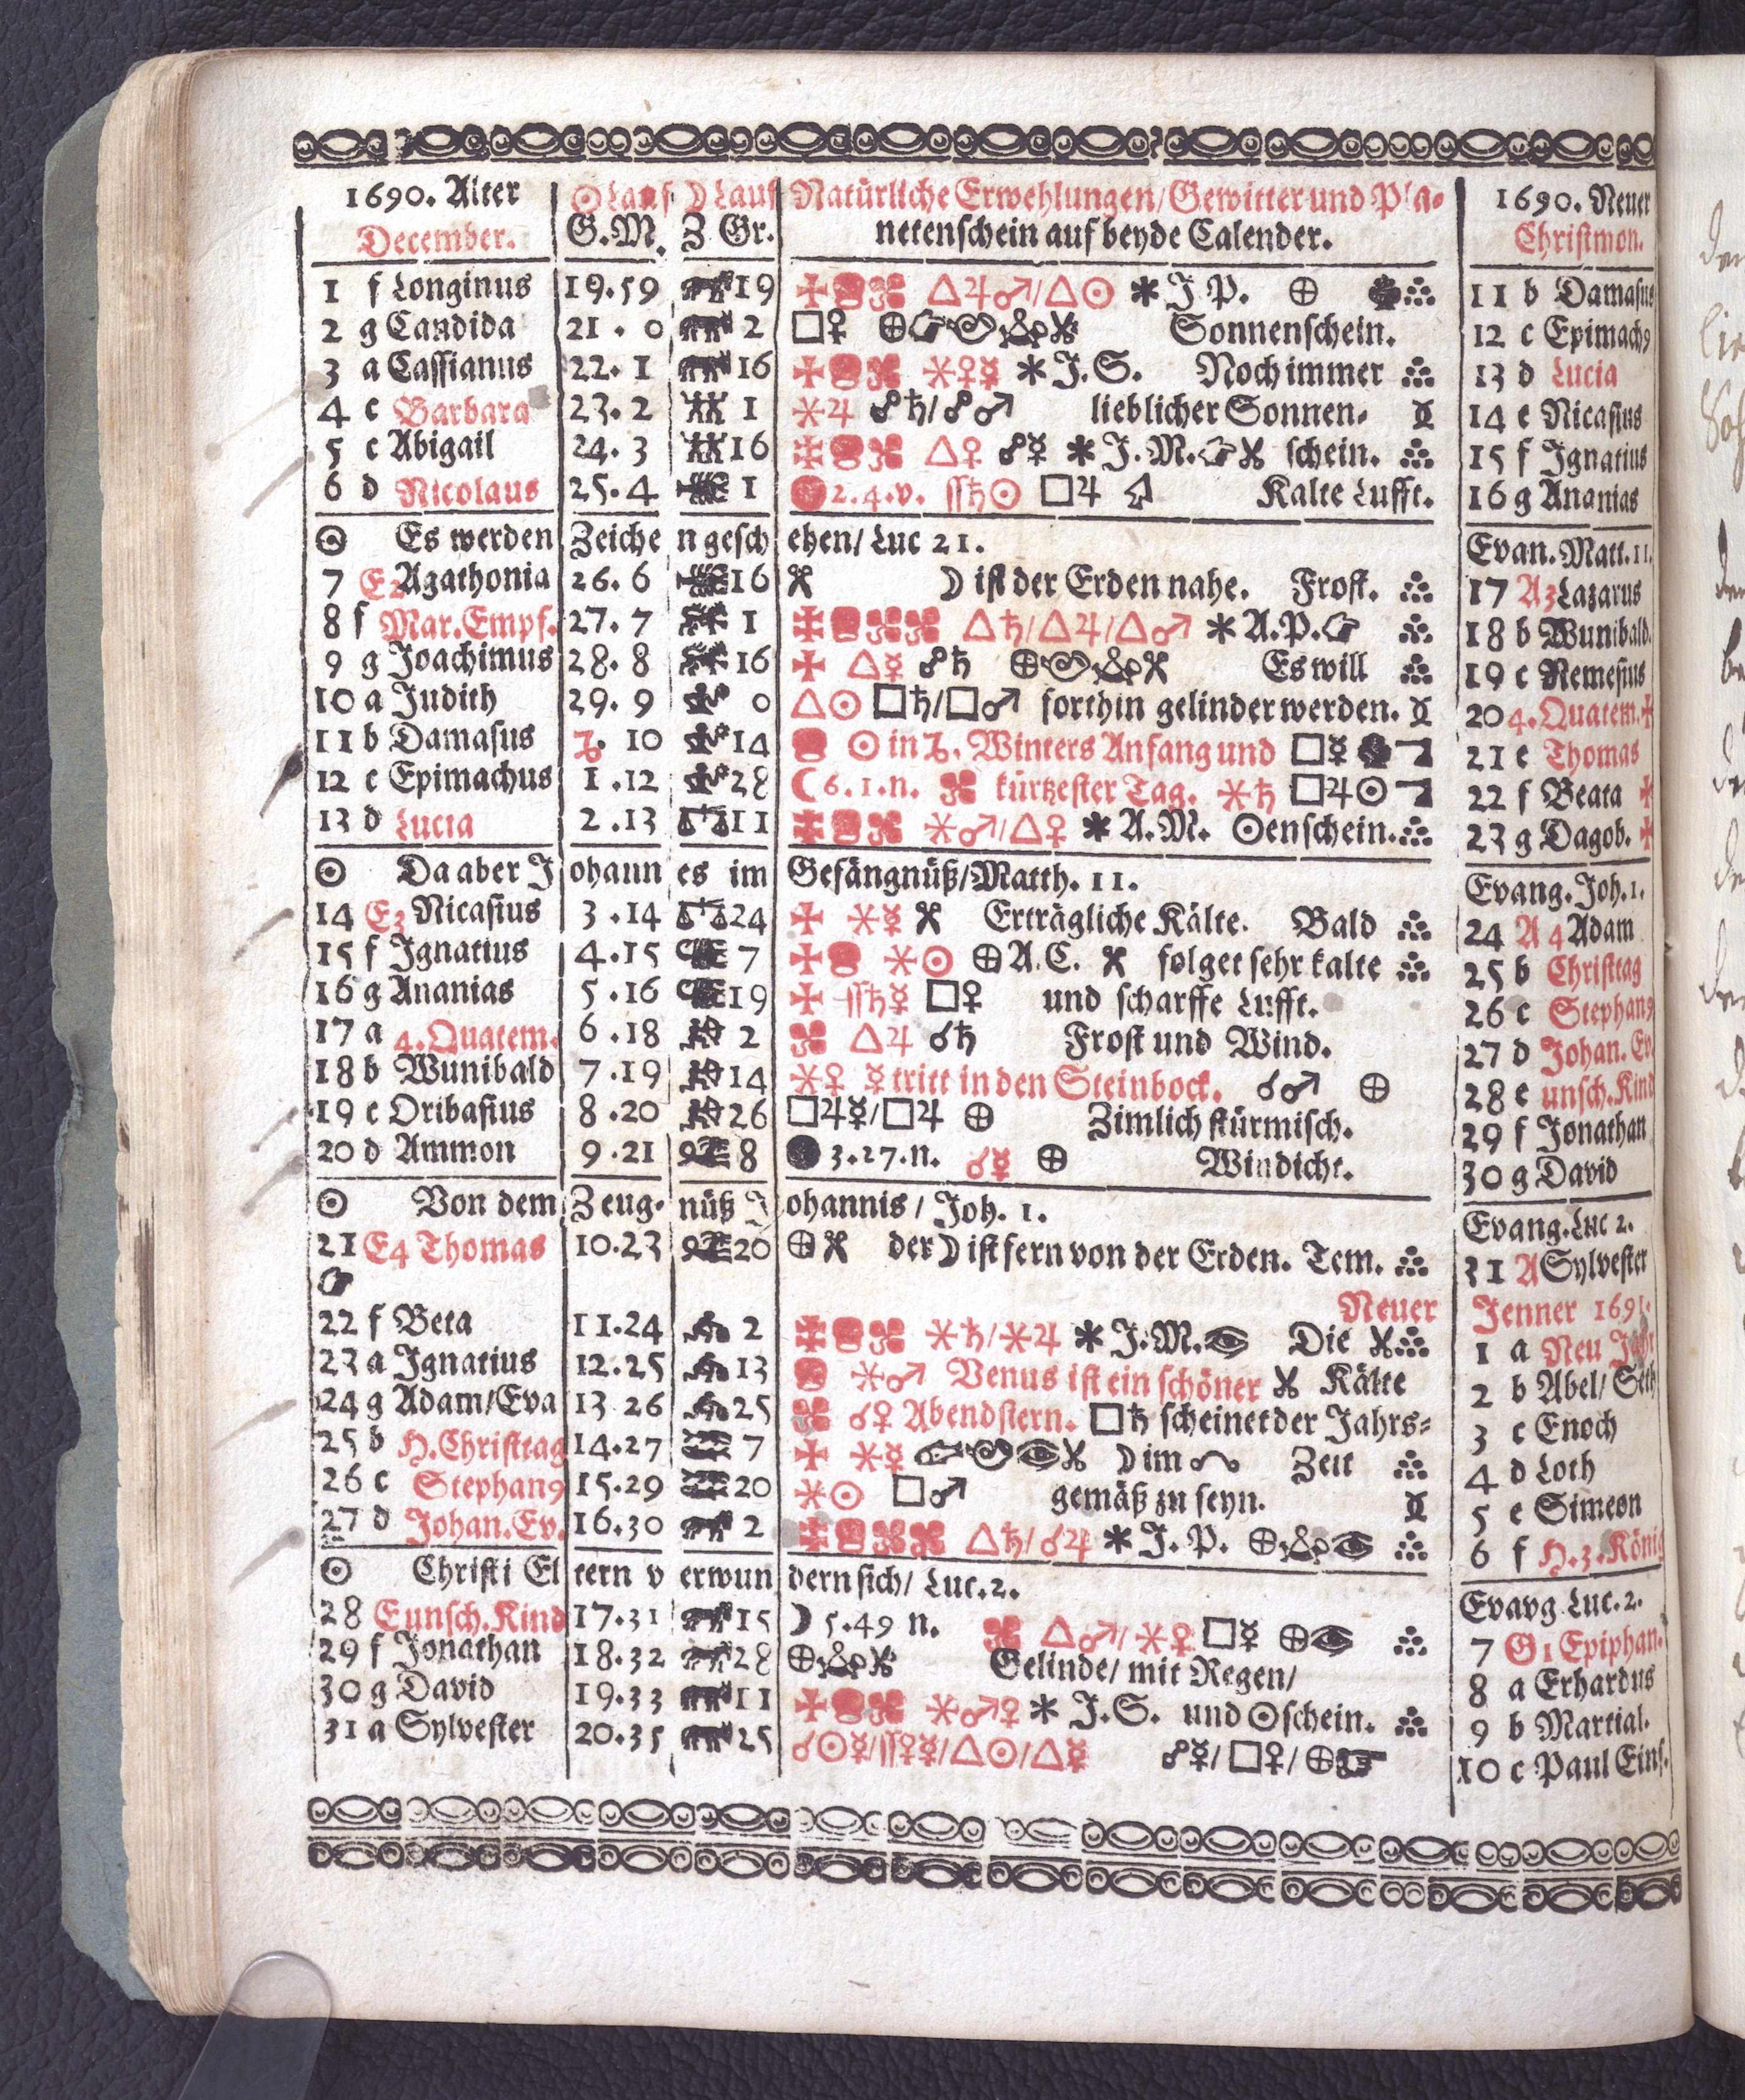 1690. Alter ☉ Lauf ☽ Lauf Natürliche Erwehlungen/Gewitter und Pla- 1690. Neuer
December. G.M. Z Gr. netenschein auf beyde Calender. Christmon.
1 f Longinus 19.59 19 △♃♂/△☉ * J.P. ⊕ 11 b Damasus
2 g Candida 21. 0 2 □♀ ⊕ Sonnenschein. 12 c Epimach9
3 a Cassianus 22. 1 16 ⚹♀☿ * J.S. Noch immer 13 d Lucia
4 c Barbara 23. 2 1 ⚹♃ ☍♄/☍♂ lieblicher Sonnen- 14 e Nicasius
5 c Abigail 24. 3 16 △♀ ☍☿ * J.M. schein. 15 f Ignatius
6 d Nicolaus 25.4 1 2.4.v. ſſ♄☉ □♃ Kalte Lufft. 16 g Ananias
☉ Es werden Zeichen geschehen/ Luc 21. Evan. Matt. 11.
7 E2 Agathonia 26. 6 16 ☽ ist der Erden nahe. Frost. 17 A3 Lazarus
8 f Mar. Empf. 27. 7 1 △♄/△♃/△♂ * A.P. 18 b Wunibald.
9 g Joachimus 28. 8 16 △☿ ☍♄ ⊕ Es will 19 c Remesius
10 a Judith 29. 9 0 △☉ □♄/□♂ forthin gelinder werden. 20 4. Quatem.
11 b Damasus ♑. 10 14 ☉ in ♑. Winters Anfang und □☿ 21 e Thomas
12 c Epimachus 1.12 28 ☾ 6.1.n. kürtzester Tag. ⚹♄ □♃☉ 22 f Beata
13 d Lucia 2.13 11 ⚹♂/△♀ * A.M. ☉enschein. 23 g Dagob.
☉ Da aber Johannes im Gefängnüß/Matth. 11. Evang. Joh. 1.
14 E3 Nicasius 3.14 24 ⚹☿ Erträgliche Kälte. Bald 24 A 4 Adam
15 f Ignatius 4.15 7 ⚹☉ ⊕ A.C. folget sehr kalte 25 b Christtag
16 g Ananias 5.16 19 ſſ♄☿ □♀ und scharffe Lufft. 26 c Stephan9
17 a 4. Quatem. 6.18 2 △♃ ☌♄ Frost und Wind. 27 d Johan. Ev.
18 b Wunibald 7.19 14 ⚹♀ ☿ tritt in den Steinbock. ☌♂ ⊕ 28 e unsch. Kind
19 c Oribasius 8.20 26 □♃☿/□♃ ⊕ Zimlich stürmisch. 29 f Jonathan
20 d Ammon 9.21 8 3.27.n. ☌☿ ⊕ Windicht. 30 g David
☉ Von dem Zeugnüß Johannis / Joh. 1. Evang. Luc 2.
21 E4 Thomas 10.23 20 ⊕ der ☽ ist fern von der Erden. Tem. 31 A Sylvester
Neuer Jenner 1691.
22 f Beta 11.24 2 ⚹♄/⚹♃ * J.M. Die 1 a Neu Jahr
23 a Ignatius 12.25 13 ⚹♂ Venus ist ein schöner Kälte 2 b Abel/ Seth
24 g Adam/Eva 13 26 25 ☌♀ Abendstern. □♄ scheinet der Jahrs- 3 c Enoch
25 b H. Christtag 14.27 7 ⚹☿ ☽ im Zeit 4 d Loth
26 c Stephan9 15.29 20 ⚹☉ □♂ gemäß zu seyn. 5 e Simeon
27 d Johan. Ev. 16.30 2 △♄/☌♃ * J.P. ⊕ 6 f H. 3. König
☉ Christi Eltern verwundern sich/ Luc. 2. Evavg. Luc. 2.
28 E unsch. Kind 17.31 15 ☽ 5.49 n. △♂/⚹♀ □☿ ⊕ 7 G1 Epiphan.
29 f Jonathan 18.32 28 ⊕ Gelinde/ mit Regen/ 8 a Erhardus
30 g David 19.33 11 ⚹♂♀ * J.S. und ☉schein. 9 b Martial.
31 a Sylvester 20.35 25 ☌☉☿/ſſ♀☿/△☉/△☿ ☍☿/□♀/⊕ 10 c Paul Eins.